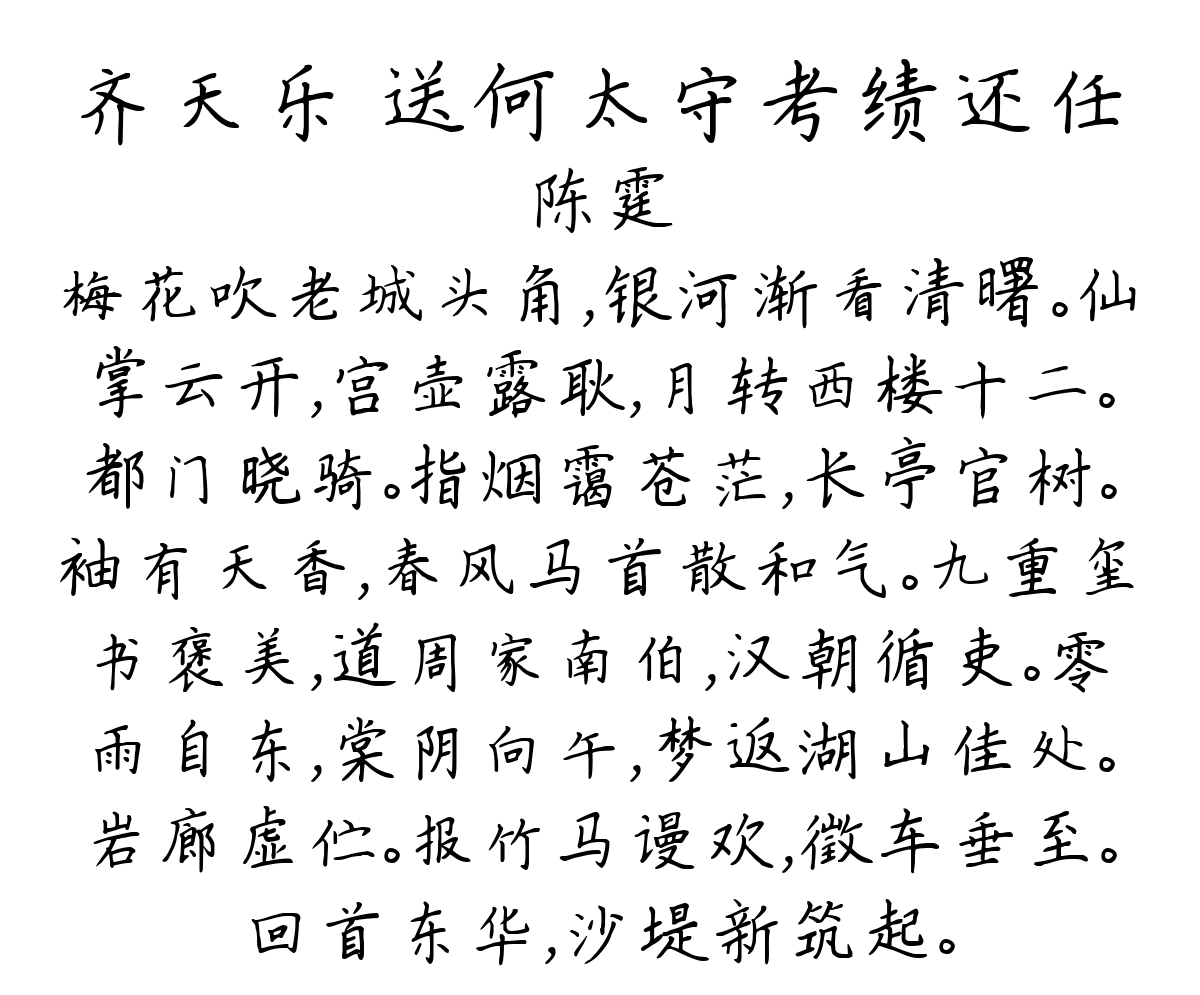 齐天乐 送何太守考绩还任
陈霆
梅花吹老城头角,银河渐看清曙。仙
掌云开,宫壶露耿,月转西楼十二。
都门晓骑。指烟霭苍茫,长亭官树。
袖有天香,春风马首散和气。九重玺
书褒美,道周家南伯,汉朝循吏。零
雨自东,棠阴向午,梦返湖山佳处。
岩廊虚伫。报竹马谩欢,徵车垂至。
回首东华,沙堤新筑起。